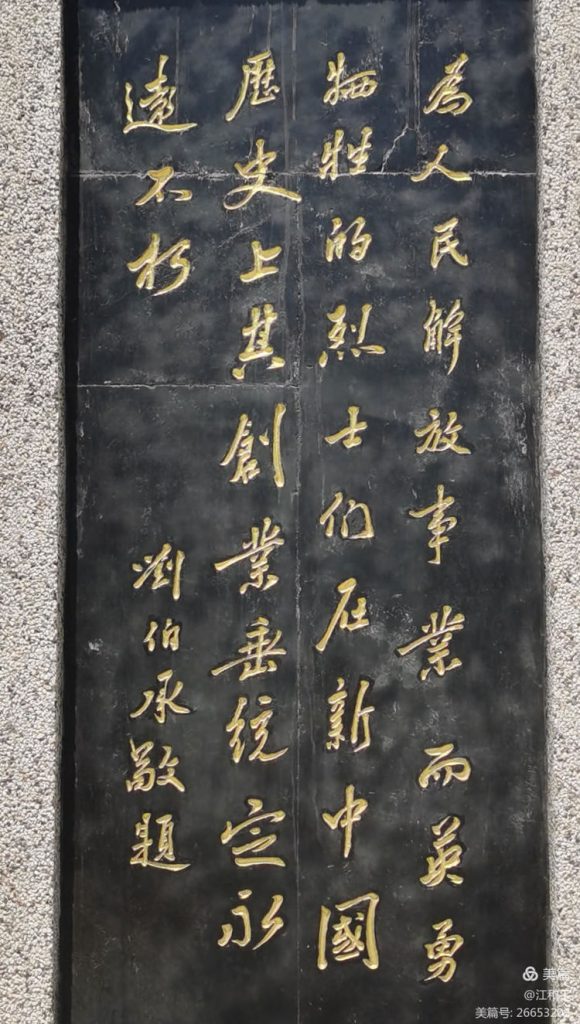 為人民解放事業而英勇
牺牲的烈士们在新中國
歷史上其創業垂统定永
遠不朽
劉伯承敬題
美篇
美篇号: 266532